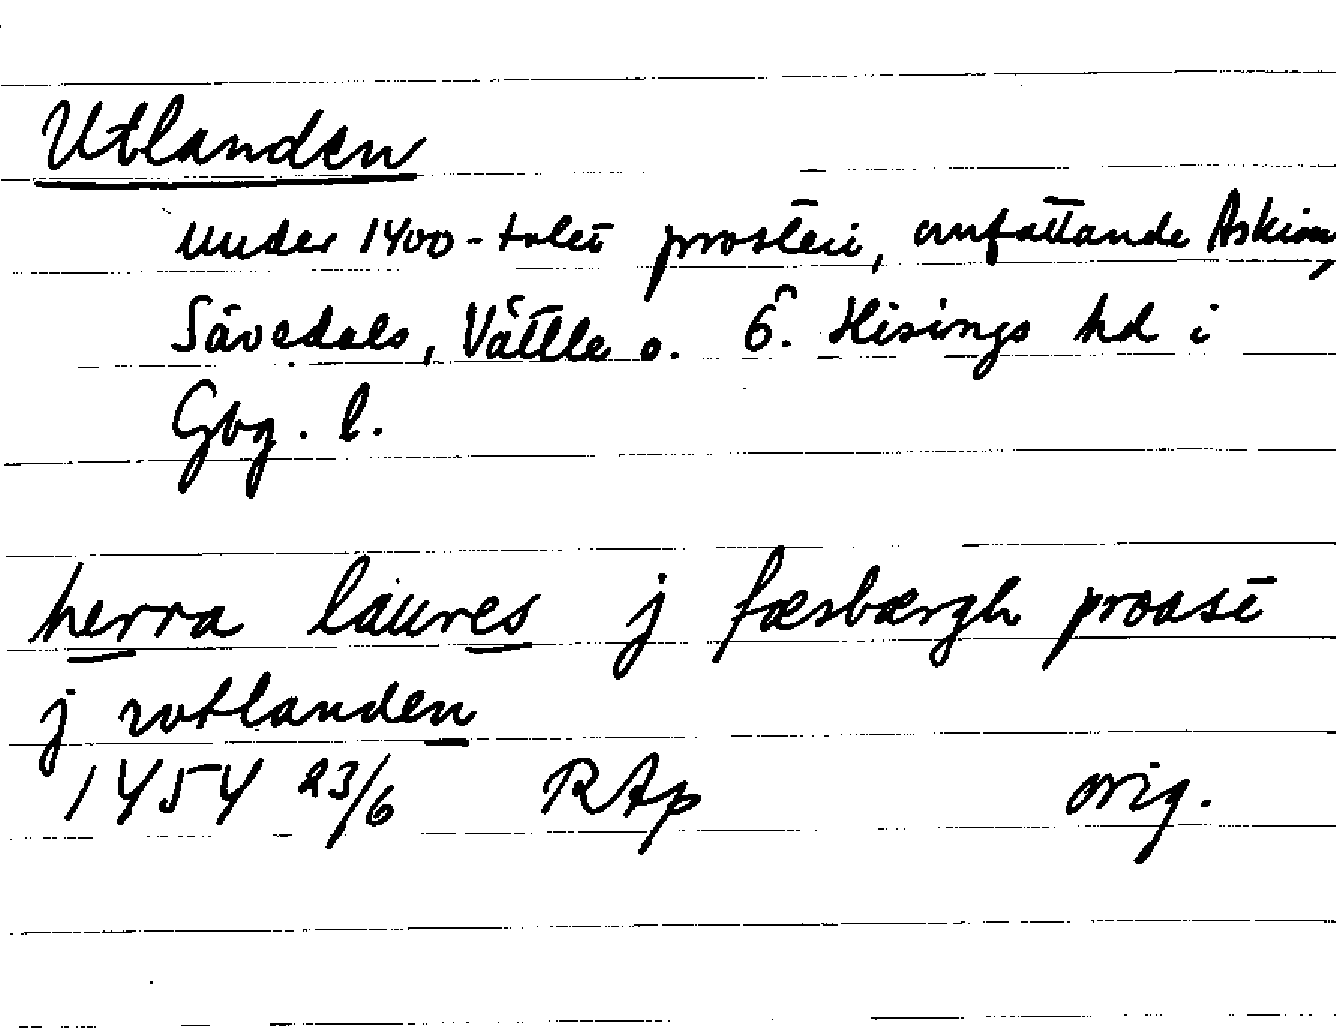 Utlanden
under 1400-talet prosteri, omfattande Askim,
Sävedals, Vättle o. Ö. Hisings hd i
Gbg. l.
herra laures j fæsbærgh proast
j wtlanden
1454 23/6 RAp orig.